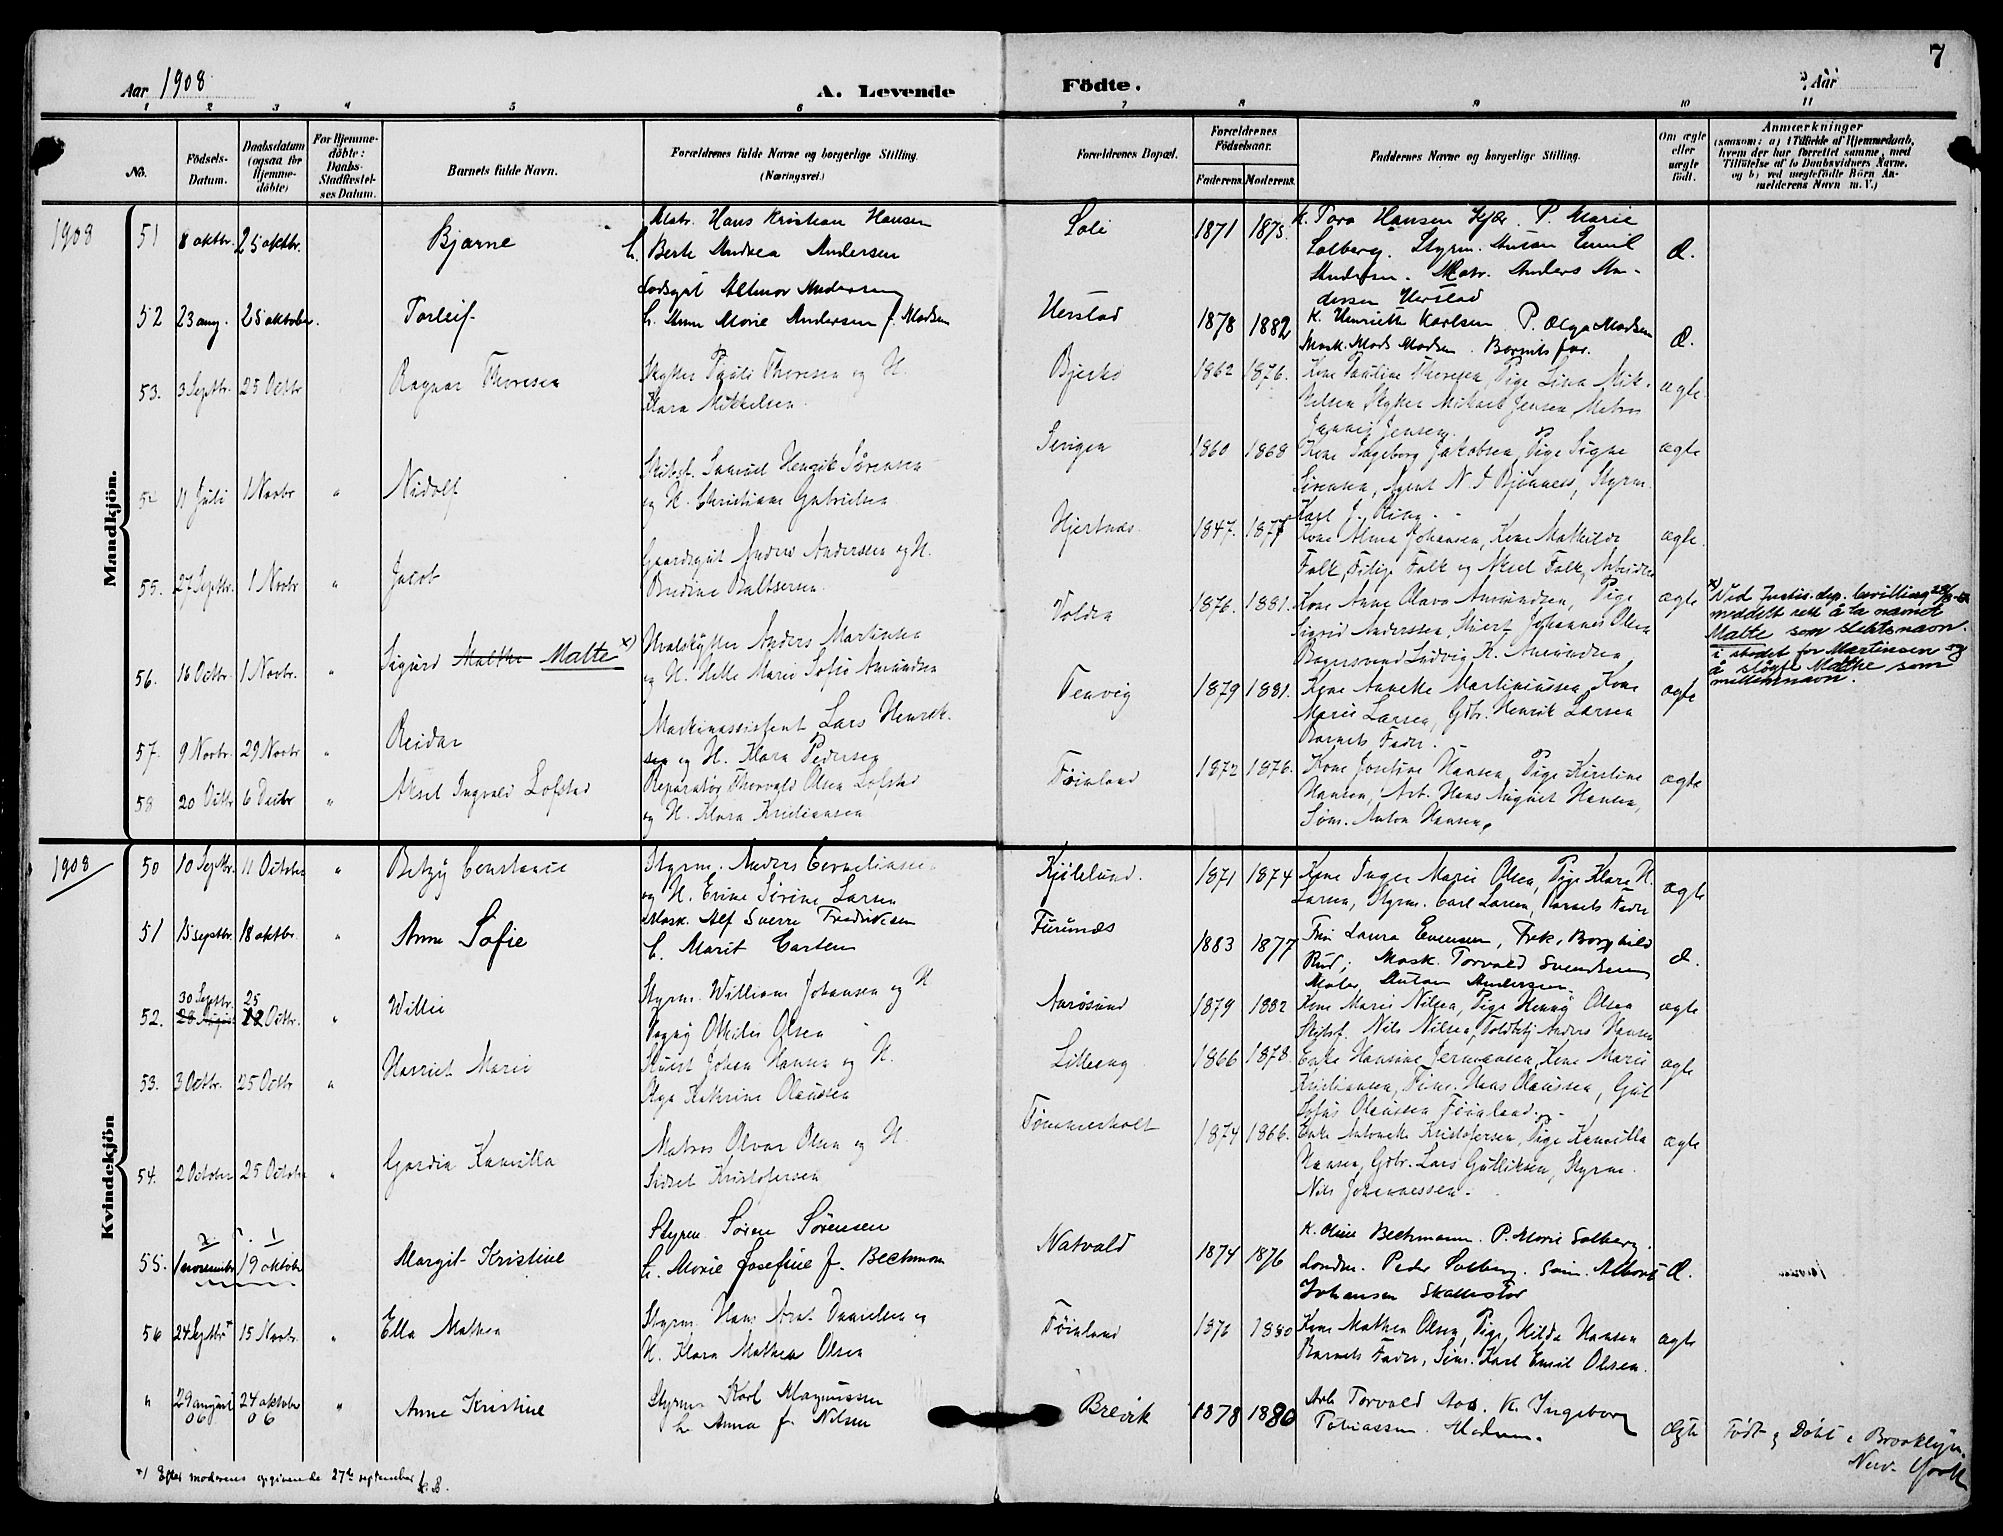 7
Aar 1908
A. Levende Födte.
Aar
1 2 3 4 5 6 7 8 9 10 11
No.
Födsels-Datum.
Daabsdatum (ogsaa for Hjemme-döbte)
For Hjemme-döbte: Daabs-Stadfæstel-ses Datum.
Barnets fulde Navn.
Forældrenes fulde Navne og borgerlige Stilling. (Næringsvei.)
Forældrenes Bopæl.
Forældrenes Födselsaar.
Faderens. Moderens.
Faddernes Navne og borgerlige Stilling.
Om ægte eller uægte födt.
Anmærkninger
(saasom: a) i Tilfælde af Hjemmedaab, hvem der har forrettet samme, med Tilföielse af to Daabsvidners Navne, og b) ved uegtefödte Börn An-melderens Navn m. V.)
Mandkjön.
1908
51 8 oktbr. 25 oktbr. Bjarne
Matr. Hans Kristian Hansen
h. Berte Andrea Andersen
Soli 1871 1875.
K. Tora Hansen Kjær. P. Marie
Solberg. Styrm. Anton Emil
Andersen. Matr. Anders An-
dersen Herstad
Æ.
52 23 aug. 25 oktober. Torleif
Lodsgut Altmor Andersen
h. Anne Marie Andersen f. Madsen
Herstad 1878 1882
K. Henriette Karlsen. P. Olga Madsen
Mask. Mads Madsen. Barnets far.
Æ.
53. 3 Septbr. 25 Octbr Ragnar Thoresen
Skytter Pauli Thoresen og H.
Klara Mikkelsen
Bjerkø 1862 1876.
Kone Pauline Thoresen, Pige Lina Mik-
kelsen Skytter Mikael Jensen, Matros
Jensen.
ægte.
54 11 Juli 1 Novbr " Nidolf
Skibsf. Samuel Henrik Sørensen
og H. Christiane Gabrielsen
1860 1868
Kone Ingeborg Jakobsen, Pige Signe
Sørensen, Agent N. J. Bjønnes, Styrm.
Karl J.
ægte
55. 27 Septbr. 1 Novbr " Jacob
Gaardsgut Anders Andersen og H.
Andine Baltsersen
Hjertnæs. 1847. 1877
Kone Alma Johansen, Kone Mathilde
Falk, Falk og Aksel Falk, Arbeidere
ægte.
56. 16 Octbr 1 Novbr. " Sigurd Malthe Malte x)
Hvalskytter Anders Martinsen
og H. Helle Marie Sofie Amundsen
Volden 1876. 1881.
Kone Anne Olava Amundsen, Pige
Sigrid Anderssen, Stuert Johannes Olsen
Bagersvend Ludvig K. Amundsen
ægte
x) Ved Justis.dep. bevilling
meddelt rett å ta navnet
Malte som slektsnavn
i stedet for Martinsen og
å sløyfe Malthe som
mellemnavn.
57. 9 Novbr. 29 Novbr " Reidar
Maskinassistent Lars Henrik-
sen og H. Klara Pedersen
Tenvig 1879 1881.
Kone Annette Martiniussen, Kone
Marie Larsen, Gdbr. Henrik Larsen
Barnets Fader.
ægte
58 20 Octbr 6 Decbr " Aksel Ingvald Lofstad
Reparatør Thorvald Olsen Lofstad
og H. Klara Kristiansen
Føinland 1872 1876.
Kone Josefine Hansen, Pige Kirstine
Hansen, Arb. Hans August Hansen,
Søm. Anton Hansen.
ægte
Kvindekjön
1908
50 10 Septbr. 11 October " Betzy Constance
Styrm. Anders Corneliussen
og H. Erine Sirine Larsen
Kjølelund. 1871 1874
Kone Inger Marie Olsen, Pige Klara H.
Larsen, Styrm. Carl Larsen, Barnets Fader
ægte
51 15 septbr. 18 oktbr. " Anne Sofie
Mask. Alf Sverre Fredriksen
h. Marit Carlsen
Furunæs 1883 1877
Fru Laura Evensen, Frk. Borghild
Rud; Mask. Torvald Svendsen
Maler Anton Andersen.
Æ.
52. 30 Septbr. 28 August 25 12 Octbr. " Willie
Styrm. William Johansen og H
Othilie Olsen
Aarøsund 1879 1882
Kone Marie Nilsen, Pige Henny Olsen
Skibsf. Nils Nilsen, Toldbetj Anders Hansen
ægte
53. 3 Octbr. 25 Octbr " Harriet Marie
Stuert Johan Hansen og H.
Olga Kathrine Olaussen
Lilleeng 1866 1878.
Enke Hansine Jermansen, Kone Marie
Kristiansen, Hans Olaussen, Gut
Sofus Olaussen Føinland.
ægte
54. 2 October 25 October " Gerdia Kamilla
Matros Olvar Olsen og H.
Sidsel Kristofersen
Tømmerholt 1874 1866.
Enke Antonette Kristofersen, Pige Kamilla
Hansen, Gdbr. Lars Gulliksen, Styrm.
Nils Johannessen.
ægte
55. 1 november 19 oktober Margit Kristine
Styrm Søren Sørensen
h. Marie Josefine f. Bechmann
Natvald 1874 1876
K. Oline Bechmann. P. Marie Solberg.
Londm. Peder Solberg. Søm. Albert
Johansen Skallestad
Æ.
56 24 Septbr + 15 Novbr. " Ella Mathea
Styrm. Hans Arnt Danielsen og
H. Klara Mathea Olsen
Føinland 1876 1880
Kone Mathea Olsen, Pige Hilda Hansen
Barnets Fader, Søm. Karl Emil Olsen.
ægte
" 29 august 06 24 oktober 06 " Anne Kristine
Styrm Karl Magnussen
h. Anna f. Nilsen
Brevik 1878 1880
Arb Torvald Aas. K. Ingeborg
Tobiassen
Ægte
Født og Døbt i Brooklyn
New-York
+) Efter moderens opgivende 27de september